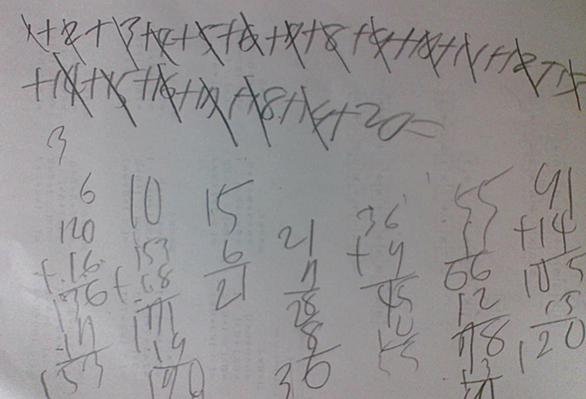 1+2+3+4+5+6+7+8+9+10+11+12+13
+14+15+16+17+18+19+20=
3
6 10 15 21 36 55 91
120 153 6 7 + 9 11 +14
+ 16 + 18 21 28 45 66 105
136 171 8 10 12 15
17 19 36 55 78 120
153 190 13
91